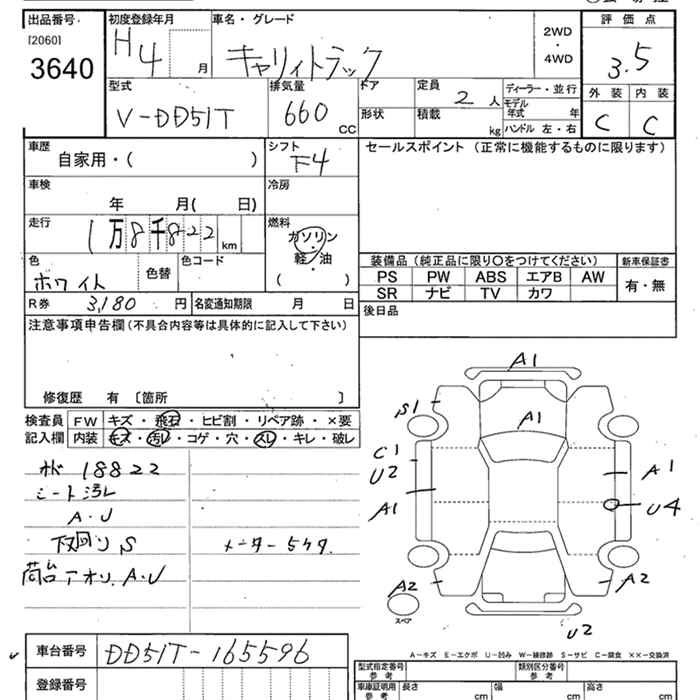 出品番号
[2060]
3640
初度登録年月
H4 月
車名・グレード
キャリィトラック
2WD
・
4WD
評価点
3.5
外装 内装
C C
型式
V-DD51T
排気量
660 CC
ドア
形状
定員
2 人
積載
kg
ディーラー・並行
モデル年式 年
ハンドル 左・右
車歴
自家用・( )
シフト
F4
セールスポイント(正常に機能するものに限ります)
車検
年 月( 日)
冷房
走行
1万8千822 km
燃料
ガソリン
・
軽・油
( )
色
ホワイト
色替
色コード
装備品(純正品に限り〇をつけてください)
新車保証書
PS PW ABS エアB AW
SR ナビ TV カワ
有・無
R券 3,180 円
名変通知期限 月 日
後日品
注意事項申告欄(不具合内容等は具体的に記入して下さい)
修復歴 有 〔箇所 〕
検査員記入欄
FW キズ・飛石・ヒビ割・リペア跡・×要
内装 キズ・汚レ・コゲ・穴・スレ・キレ・破レ
18822
シート汚レ
A・U
下回り S
メーター 交換
荷台アオリ A・U
A1
S1
A1
C1
U2
A1
A1
U4
A2
スペア
A2
U2
A-キズ E-エクボ U-凹み W-補修跡 S-サビ C-腐食 XX-交換済
車台番号 DD51T-165596
登録番号
型式指定番号
参考
類別区分番号
参考
車庫証明用
参考
長さ cm
幅 cm
高さ cm